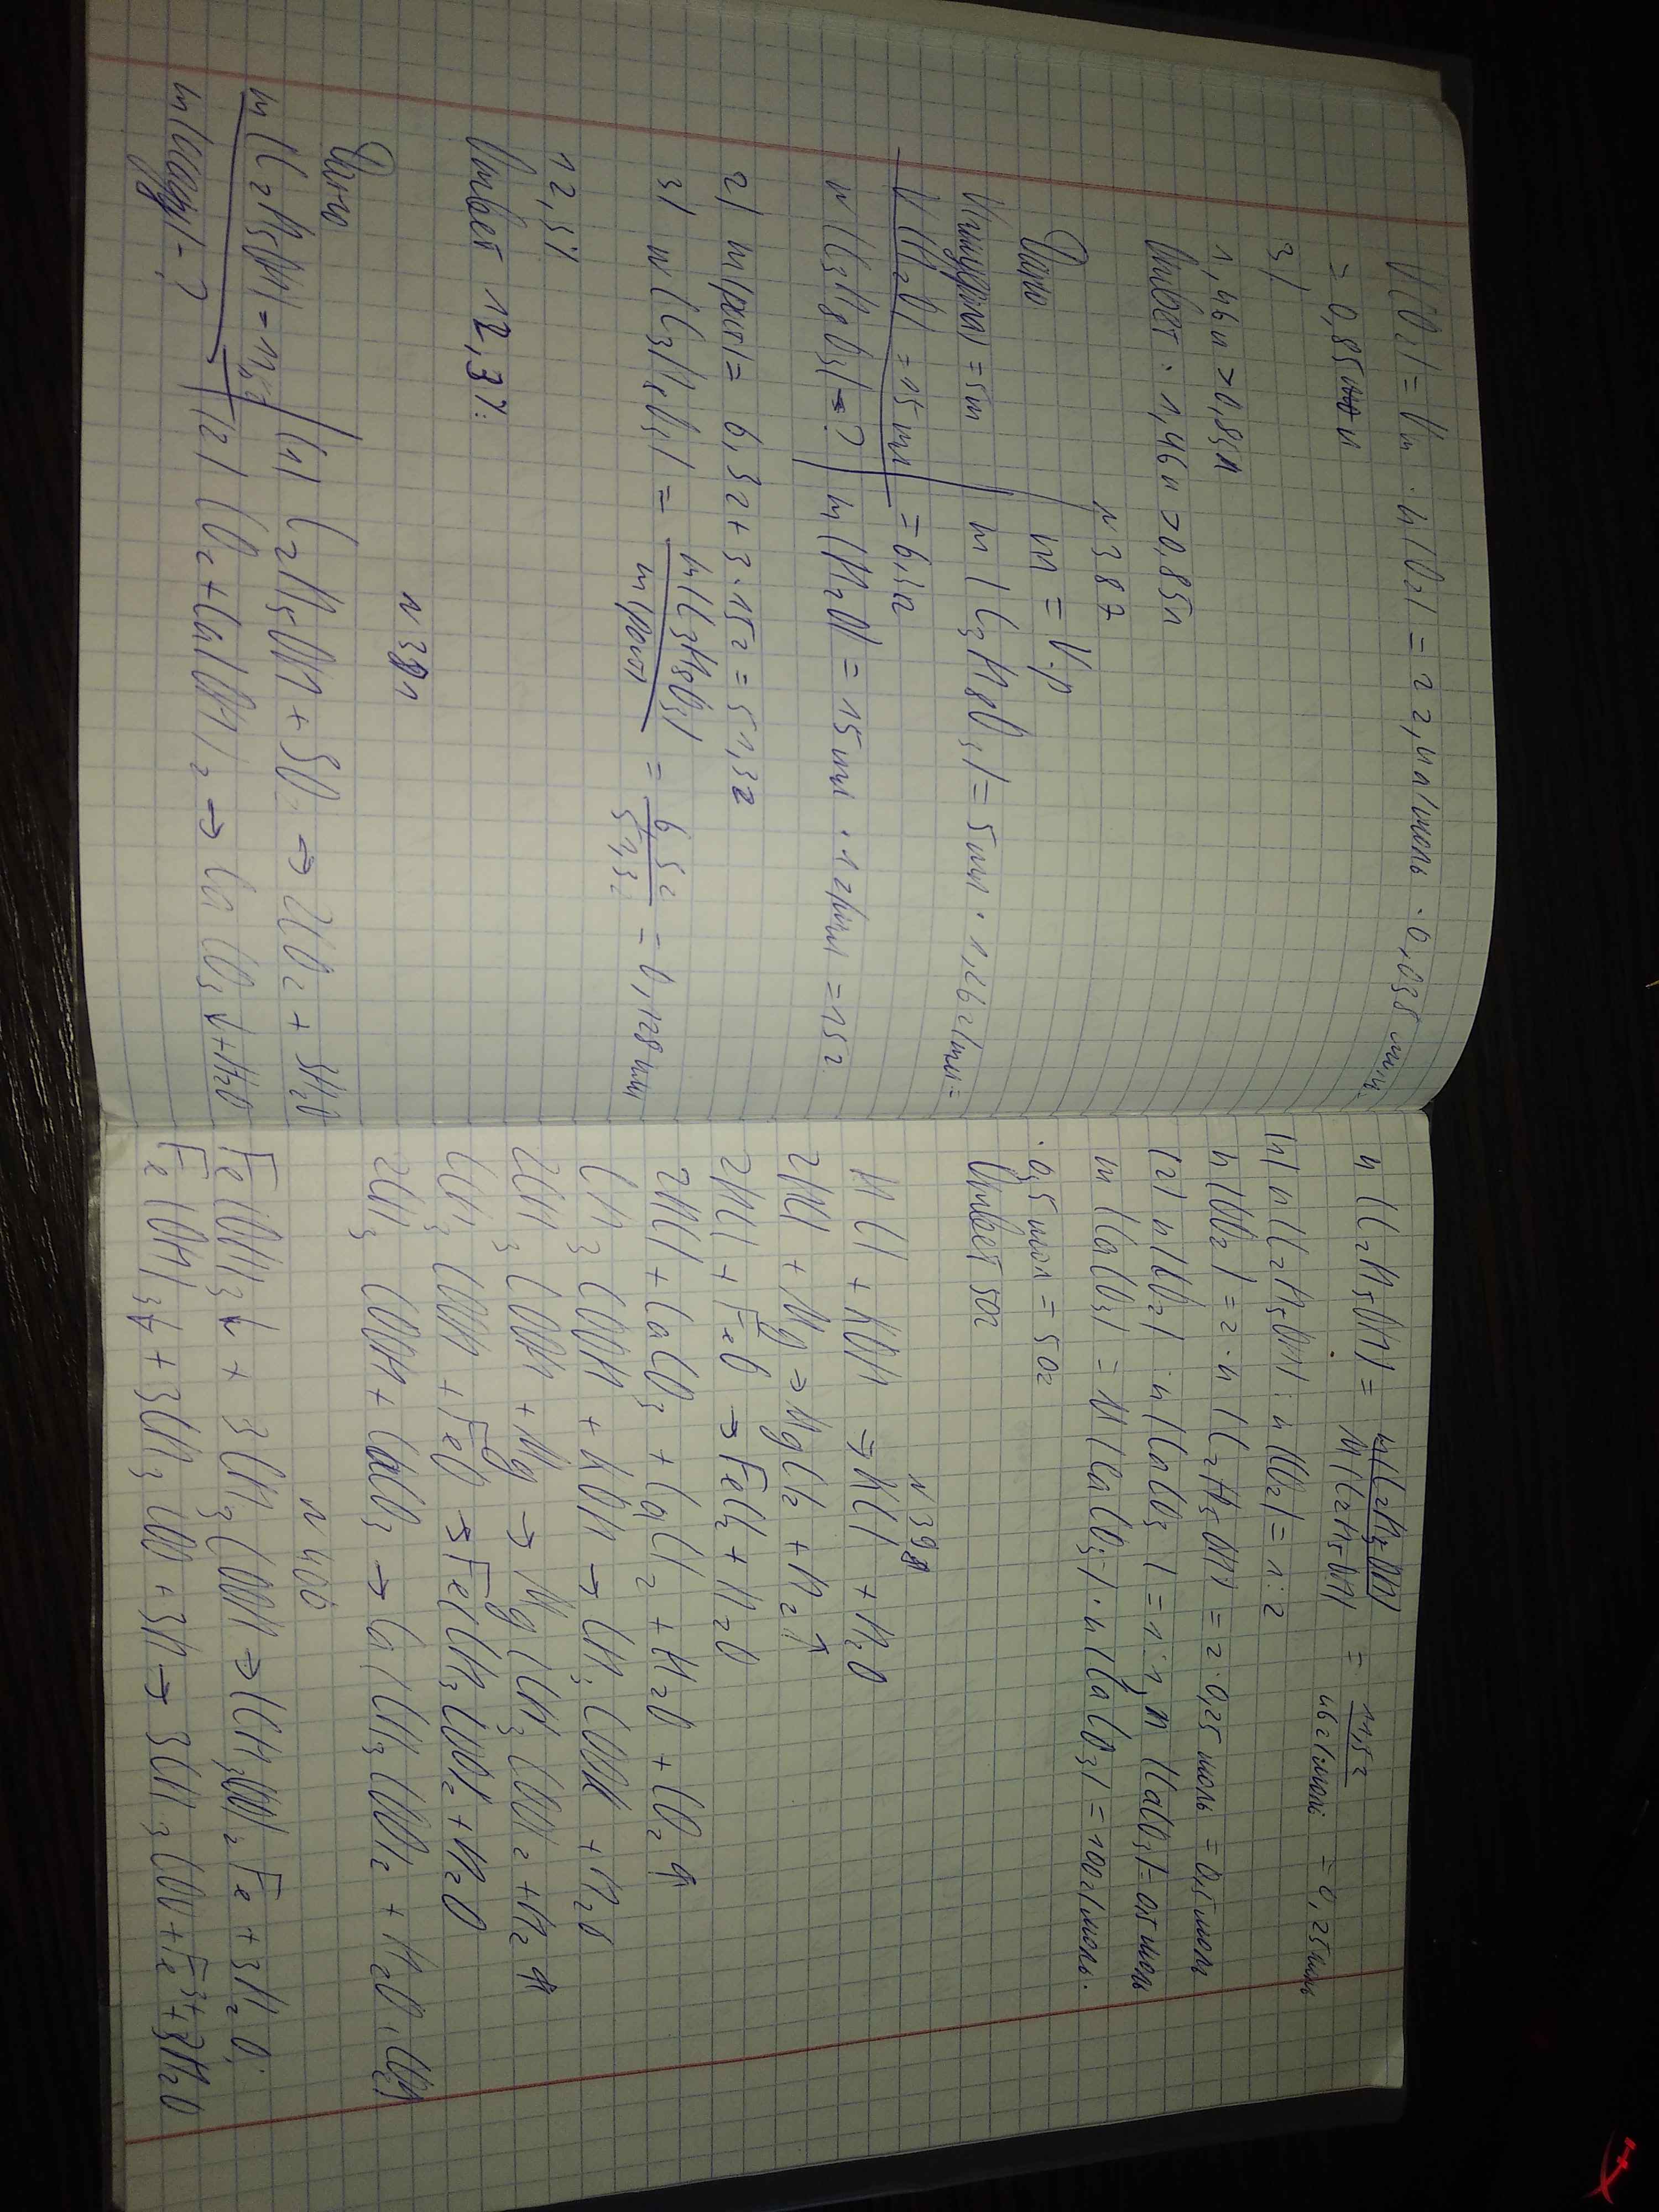 V(O₂) = Vm · n(O₂) = 22,4л/моль · 0,038 моль
= 0,85 л
3)
1,46л > 0,85л
Ответ: 1,46л > 0,85л
N387
Дано
V(H₂O) = 15мл
w(C₃H₈O₃) - ?
m = V·ρ
m(C₃H₈O₃) = 5мл · 1,26г/мл =
= 6,3г
m(H₂O) = 15мл · 1г/мл = 15г
2) m(раст) = 6,3г + 3·15г = 51,3г
3) w(C₃H₈O₃) = m(C₃H₈O₃) / m(раст) = 6,3г / 51,3г = 0,128 или
12,3%
Ответ 12,3%
Дано
m(C₂H₅OH) = 11,5г
m(осад) - ?
(1) C₂H₅OH + 3O₂ → 2CO₂ + 3H₂O
(2) CO₂ + Ca(OH)₂ → CaCO₃↓ + H₂O
n(C₂H₅OH) = m(C₂H₅OH) / M(C₂H₅OH) = 11,5г / 46г/моль = 0,25моль
(1) n(C₂H₅OH) : n(CO₂) = 1:2
n(CO₂) = 2·n(C₂H₅OH) = 2·0,25 моль = 0,5 моль
(2) n(CO₂) : n(CaCO₃) = 1:1, n(CaCO₃) = 0,5 моль
m(CaCO₃) = M(CaCO₃) · n(CaCO₃) = 100г/моль ·
· 0,5 мол = 50г
Ответ 50г
HCl + KOH → KCl + H₂O
2HCl + Mg → MgCl₂ + H₂↑
2HCl + FeO → FeCl₂ + H₂O
2HCl + CaCO₃ + CaCl₂ + H₂O + CO₂↑
CH₃COOH + KOH → CH₃COOK + H₂O
2CH₃COOH + Mg → Mg(CH₃COO)₂ + H₂↑
CH₃COOH + FeO → Fe(CH₃COO)₂ + H₂O
2CH₃COOH + CaCO₃ → Ca(CH₃COO)₂ + H₂O + CO₂↑
N400
Fe(OH)₃↓ + 3CH₃COOH → (CH₃COO)₂Fe + 3H₂O
Fe(OH)₃↓ + 3CH₃COO + 3H → 3CH₃COO + Fe³⁺ + 3H₂O